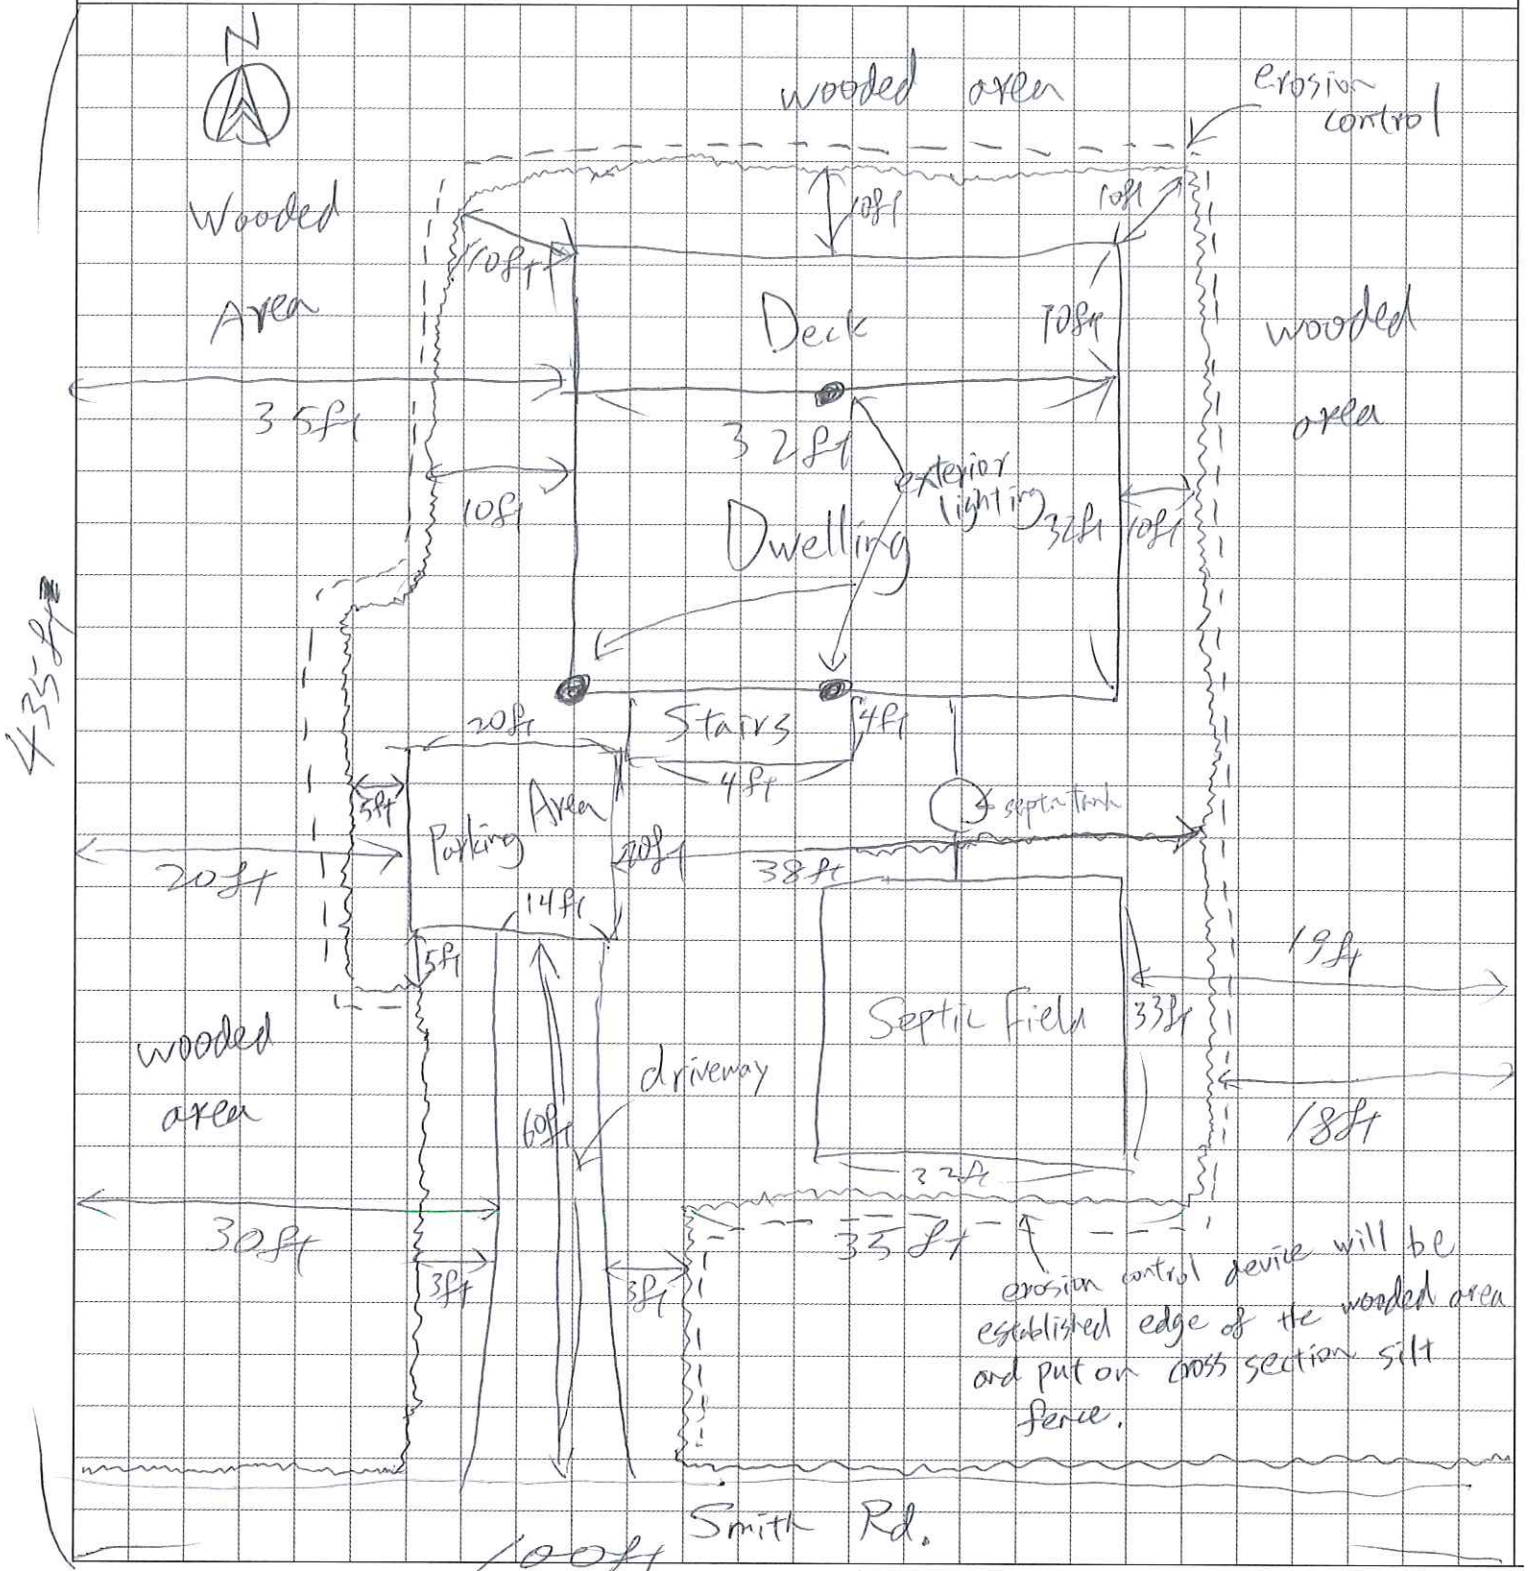 N
wooded area
erosion
control
Wooded
Area
10ft
10ft
10ft
Deck
10ft
wooded
area
35ft
32ft
exterior
lighting
10ft
32ft
10ft
Dwelling
435ft
20ft
Stairs
4ft
4ft
5ft
Parking Area
septic Tank
20ft
20ft
38ft
14ft
5ft
19ft
Septic Field
33ft
wooded
area
driveway
60ft
18ft
22ft
30ft
35ft
3ft
3ft
erosion control device will be
established edge of the wooded area
and put on cross section silt
fence.
Smith Rd.
100ft